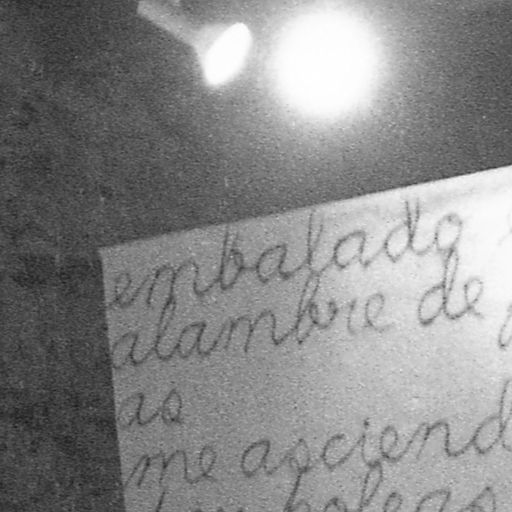 embalado
alambre de
as
me asciend
poleas